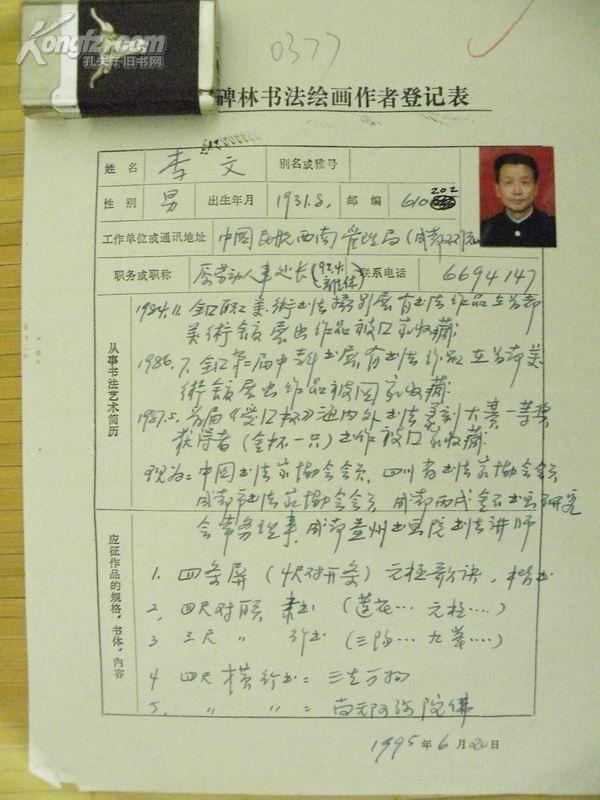 Kongfz.com
孔夫子旧书网
0377
碑林书法绘画作者登记表
姓名 李文 别名或雅号
性别 男 出生年月 1931.8. 邮编 610202
工作单位或通讯地址 中国民航西南管理局(成都双流
职务或职称 原劳动人事处长(92.4. 联系电话 6694147
从事书法艺术简历
1984.11. 美術书法 展有书法作品在
美術館展出作品被国家收藏
1986.7. 届中 书展有书法作品在 美
術館展出作品被国家收藏
1987.5. 首届 海内外书法 大赛一等奖
获得者(金杯一只)书作被国家收藏
现为:中国书法家協会会员、四川省书法家協会会员
成都市书法家協会会员 成都 书画研究
会常务理事、成都益州书画院书法讲师
应征作品的规格、书体、内容
1. 四条屏(4尺对开条)元极歌诀,楷书
2. 四尺对联 隶书 (莲花… 元极…)
3 三尺 〃 行书 (三 … 九 …)
4 四尺横行书= 三 万物
5. 〃 〃 = 南无阿弥陀佛
1995年6月20日